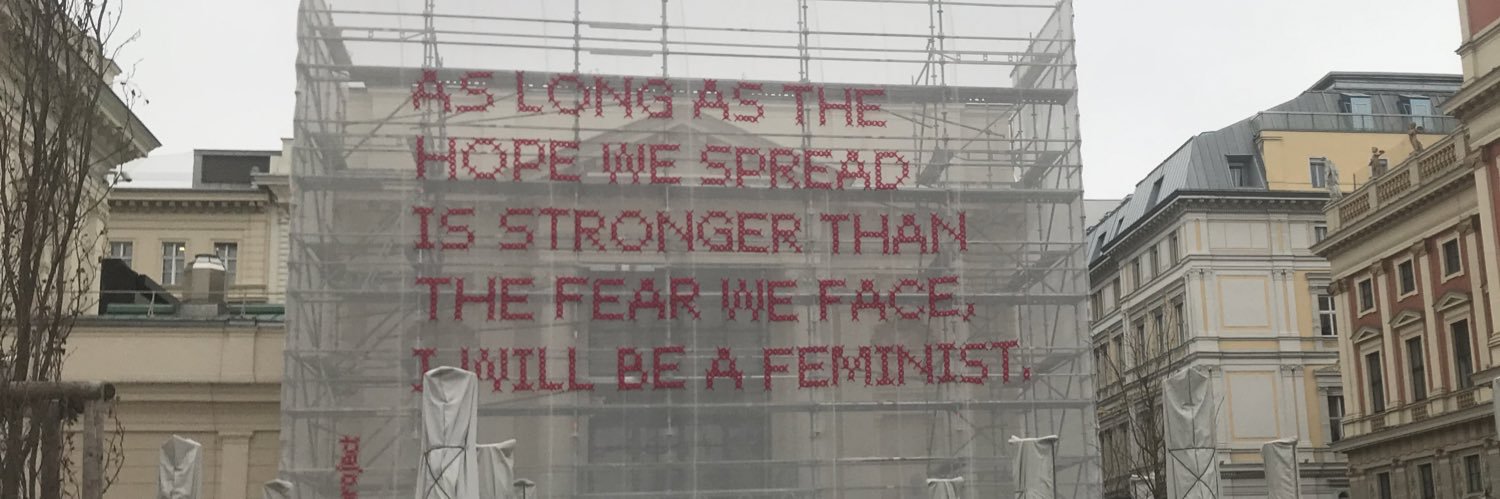 AS LONG AS THE
HOPE WE SPREAD
IS STRONGER THAN
THE FEAR WE FACE,
I WILL BE A FEMINIST.
project